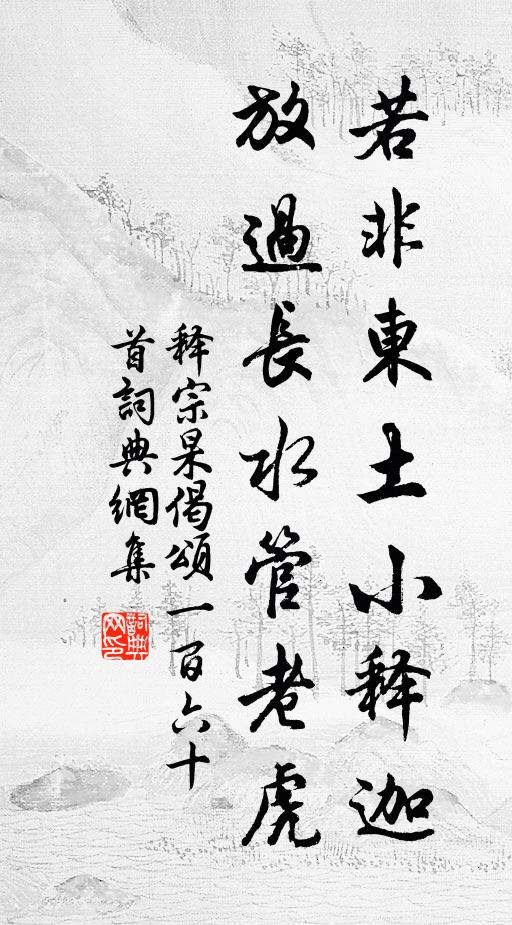 若非東土小释迦
放過長水管老虎
释宗杲偈頌一百六十
首詞典網集
詞典
网印